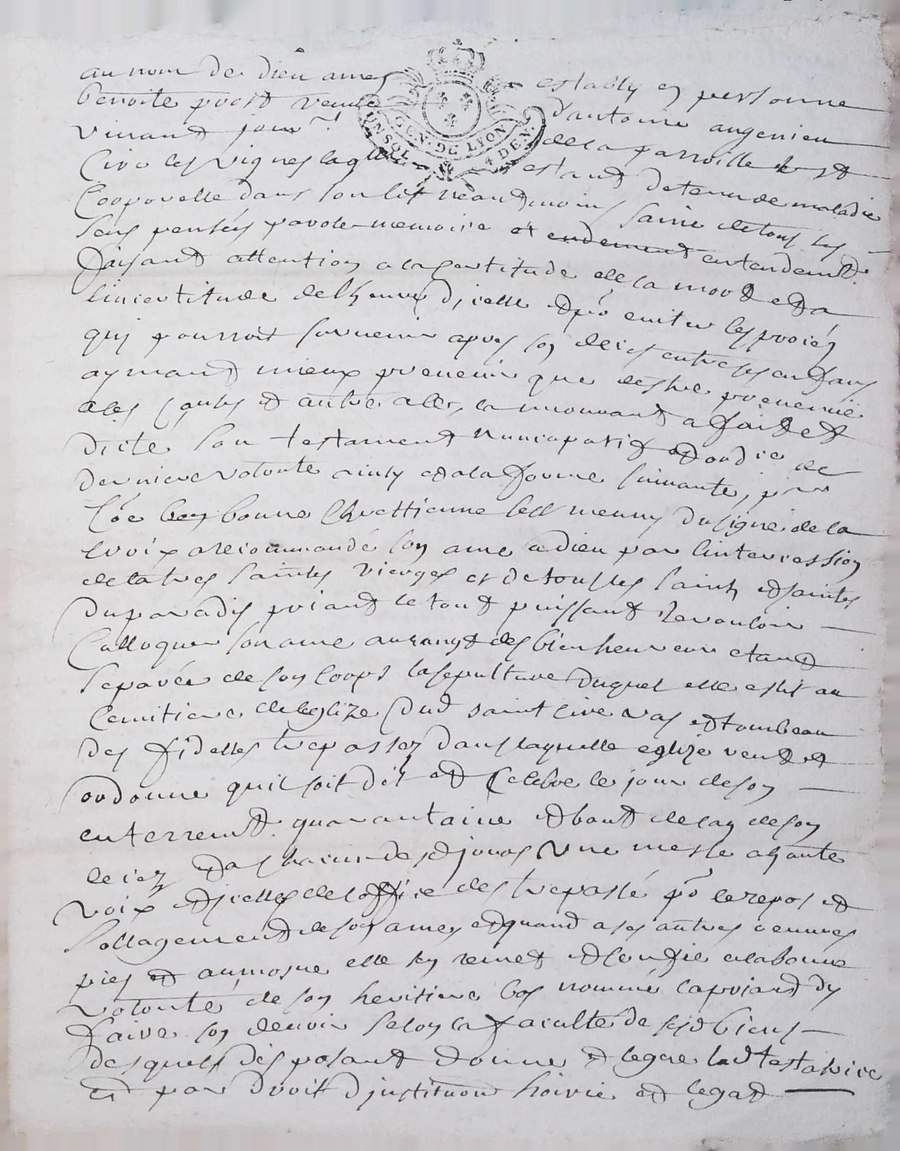 au nom de dieu amen establÿ en personne
benoite veuve d'antoine angenieu
vivand de la parroisse de st
Cire les vignes laqlle estand detenue de maladie
Corporelle dans son lit neandmoins saine de tous ses
sens pensées parole memoire et entendement
faisand attention a la certitude de la mord et a
lincertitude de lheure dicelle et po eviter les proiés
qui pourroit survenir apres son deies entre ses enfans
aymand mieux prevenir que destre prevenüe
a ses causes et autre a la mouvand a faid et
dicté son testament nuncupatif et ordre de
derniere volonte ainsy et a la forme suivante,
bonne Chrettienne sest du signe de la
Croix a reccomande son ame a dieu par lintercession
de la tres sainte vierge et de tous les saints et saintes
du paradis priand le toud puissand de vouloir
Colloquer son ame au rang des bien heureux etand
separée de son corps la sepulture duquel elle eslit au
Cemitiere de leglize dud saint Cire vas et tombeau
des fidelles trepassez dans laquelle eglize veud et
ordonne quil soit dit et Celebré le jour de son
enterremt quarantaine et boud de lan de son
deiez et a chacun desd jours une messe a haute
voix et de loffice des trepassé po le repos et
sollagemend de son ame et quand a ses autres oeuvres
pies et aumosne elle sen remet et confie a la bonne
volonté de son heritiere bas nommé la priand dy
faire son devoir selon la faculté de sesd biens
desquels disposand donne et legue lad testatrice
et par droit dinstitution hoirie et legat
GEN. DE LYON
UN SOL 4 DEN.